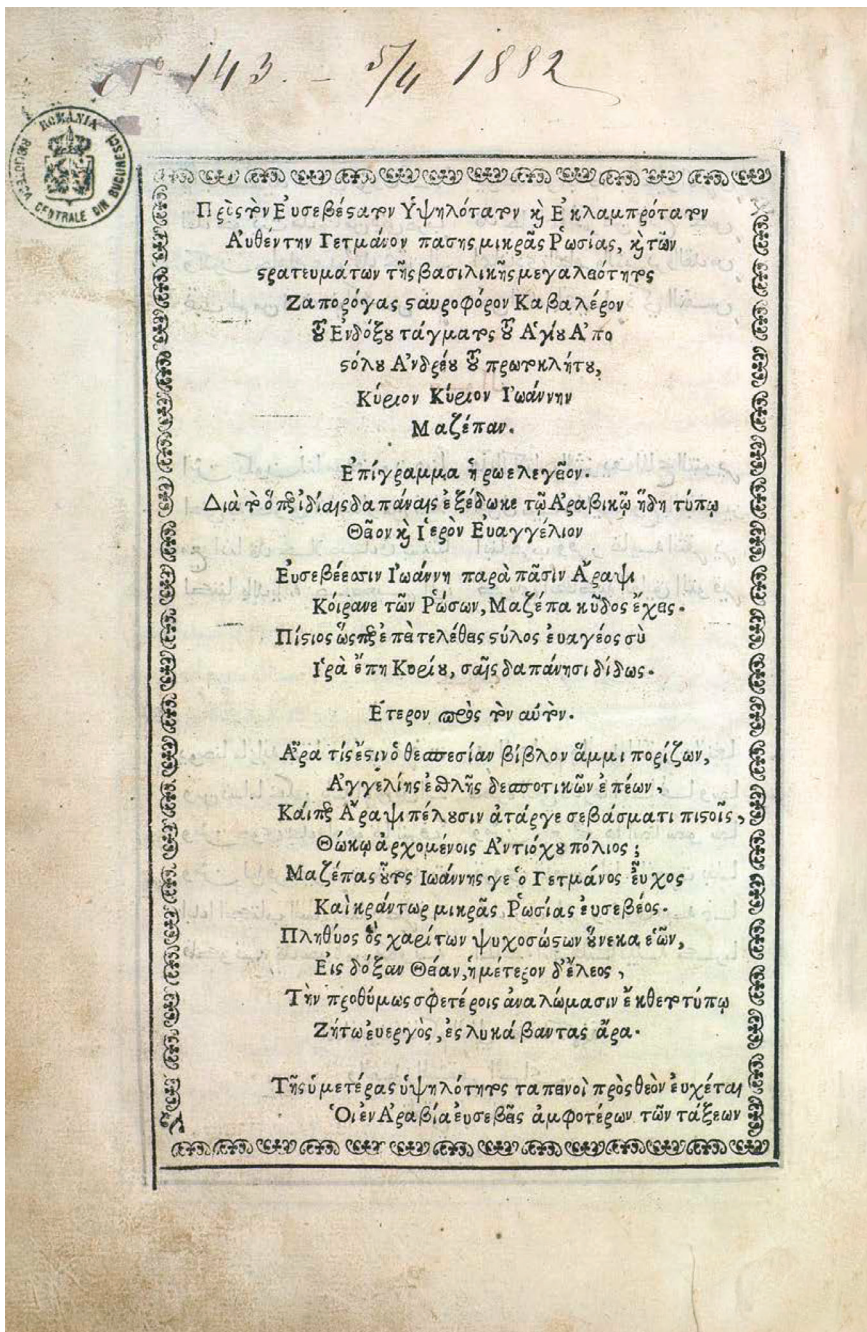 Nº 143. – 5/4 1882
ROMÂNIA
BIBLIOTECA CENTRALE DIN BUCURESCI
Πρὸς τὸν Ευσεβέϛατον Υ῾ψηλότατον κὶ Ε᾿κλαμπρότατον
Α᾿υθέντην Γετμάνον πασης μικρᾶς Ῥωσίας, κὶ τῶν
ϛρατευμάτων τῆς βασιλικῆς μεγαλειότητος
Ζαπορόγας ϛαυροφόρον Καβαλέρον
τȣ͂ Ε᾿νδόξȣ τάγματος τȣ͂ Α῾γίȣ Α᾿πο
ϛόλȣ Α᾿νδρέȣ τȣ͂ πρωτοκλήτȣ,
Κύριον Κύριον Ι᾿ωάννην
Μαζέπαν.
Ε᾿πίγραμμα ἡρωελεγεῖον.
Διὰ τὸ ὅπερ ἰδίαις δαπάναις ἐξέδωκε τῷ Α᾿ραβικῷ ἤδη τύπῳ
Θεῖον κὶ Ι῾ερὸν Ευαγγέλιον
Ευσεβέεσσιν Ι᾿ωάννη παρὰ πᾶσιν Α῎ραψι
Κόιρανε τῶν Ῥώσων, Μαζέπα κῦδος ἔχεις.
Πίϛιος ὥςπερ ἐπεὶ τελέθεις ϛύλος ἐυαγέος σὺ
Ι῾ρὰ ἔπη Κυρίȣ, σαῖς δαπάνησι δίδως.
Ετερον πρὸς τὸν αὐτὸν.
Α῏ρα τίς ἐϛιν ὁ θεσπεσίαν βίβλον ἅμμι πορίζων,
Α᾿γγελίης ἐσθλῆς δεσποτικῶν ἐπέων,
Κάιπερ Α῎ραψι πέλȣσιν ἀτάργε σεβάσματι πιϛοῖς,
Θώκῳ ἀρχομένοις Α᾿ντιόχȣ πόλιος;
Μαζέπας ȣ῟τος Ι᾿ωάννης γε ὁ Γετμάνος ἒυχος
Καὶ κράντωρ μικρᾶς Ῥωσίας ἐυσεβέος.
Πληθύος ὃς χαρίτων ψυχοσώϛων ȣ῞νεκα ἑῶν,
Εις δόξαν Θείαν, ἡμέτερον δ᾽ ἔλεος,
Τὴν προθύμως σφετέροις ἀναλώμασιν ἔκθετο τύπῳ
Ζήτω ἐυεργὸς, ἐς λυκάβαντας ἄρα.
Τῆς ὑμετέρας ὑψηλότητος ταπεινοὶ πρὸς θεὸν ἐυχέται
Ὁι ἐν Α᾿ραβία ἐυσεβεῖς ἀμφοτέρων τῶν τάξεων